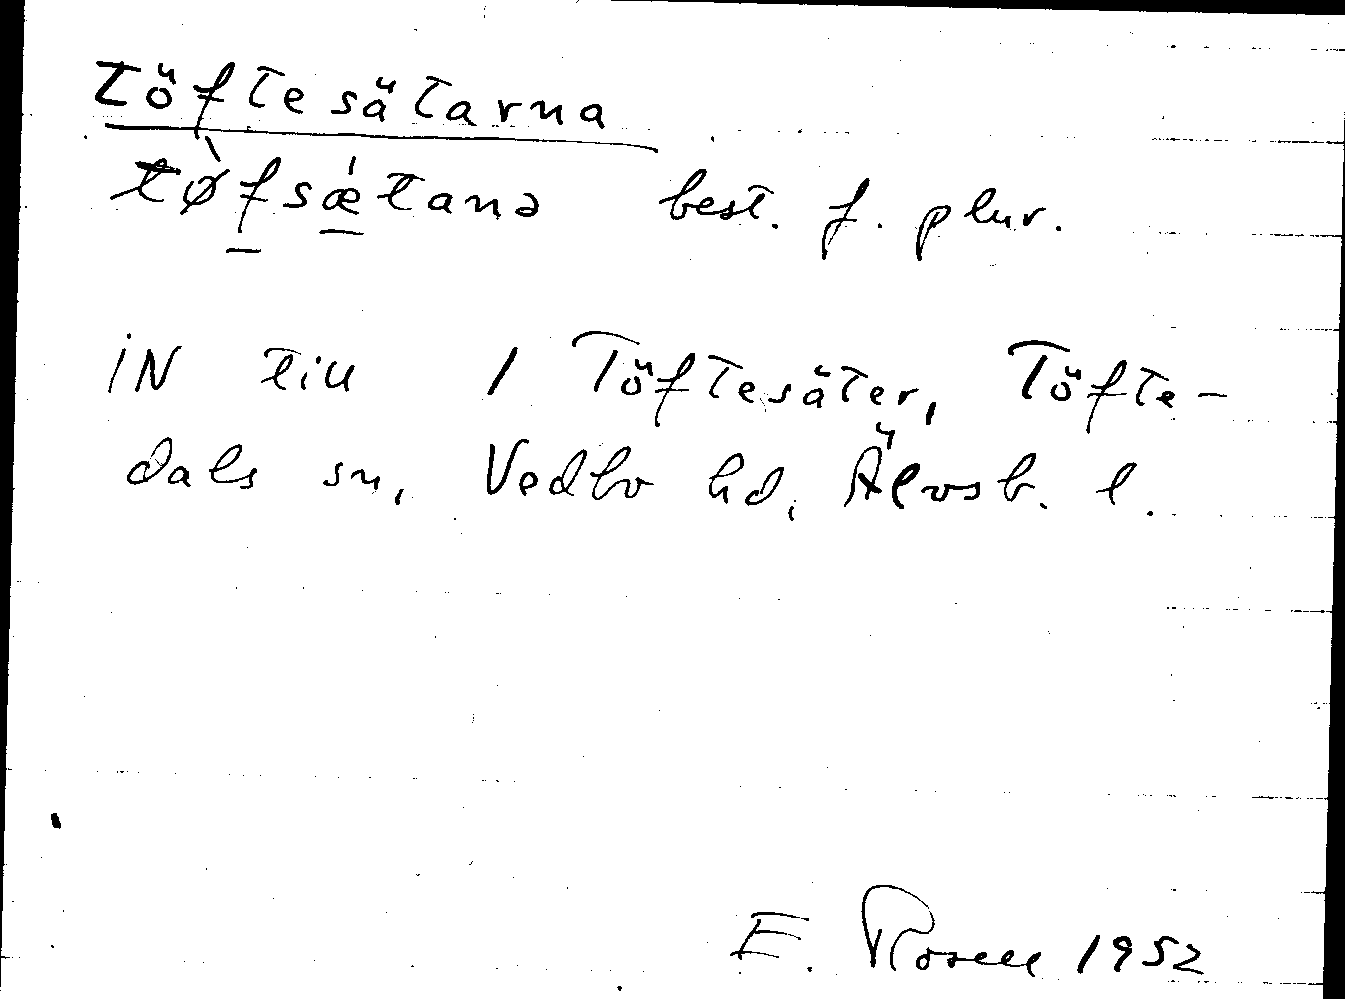 töftesätarna
tø̀fsǽtanə best. f. plur.
iN till 1 Töftesäter, Töfte-
dals sn, Vedbo hd, Älvsb. l.
E. Rosell 1952